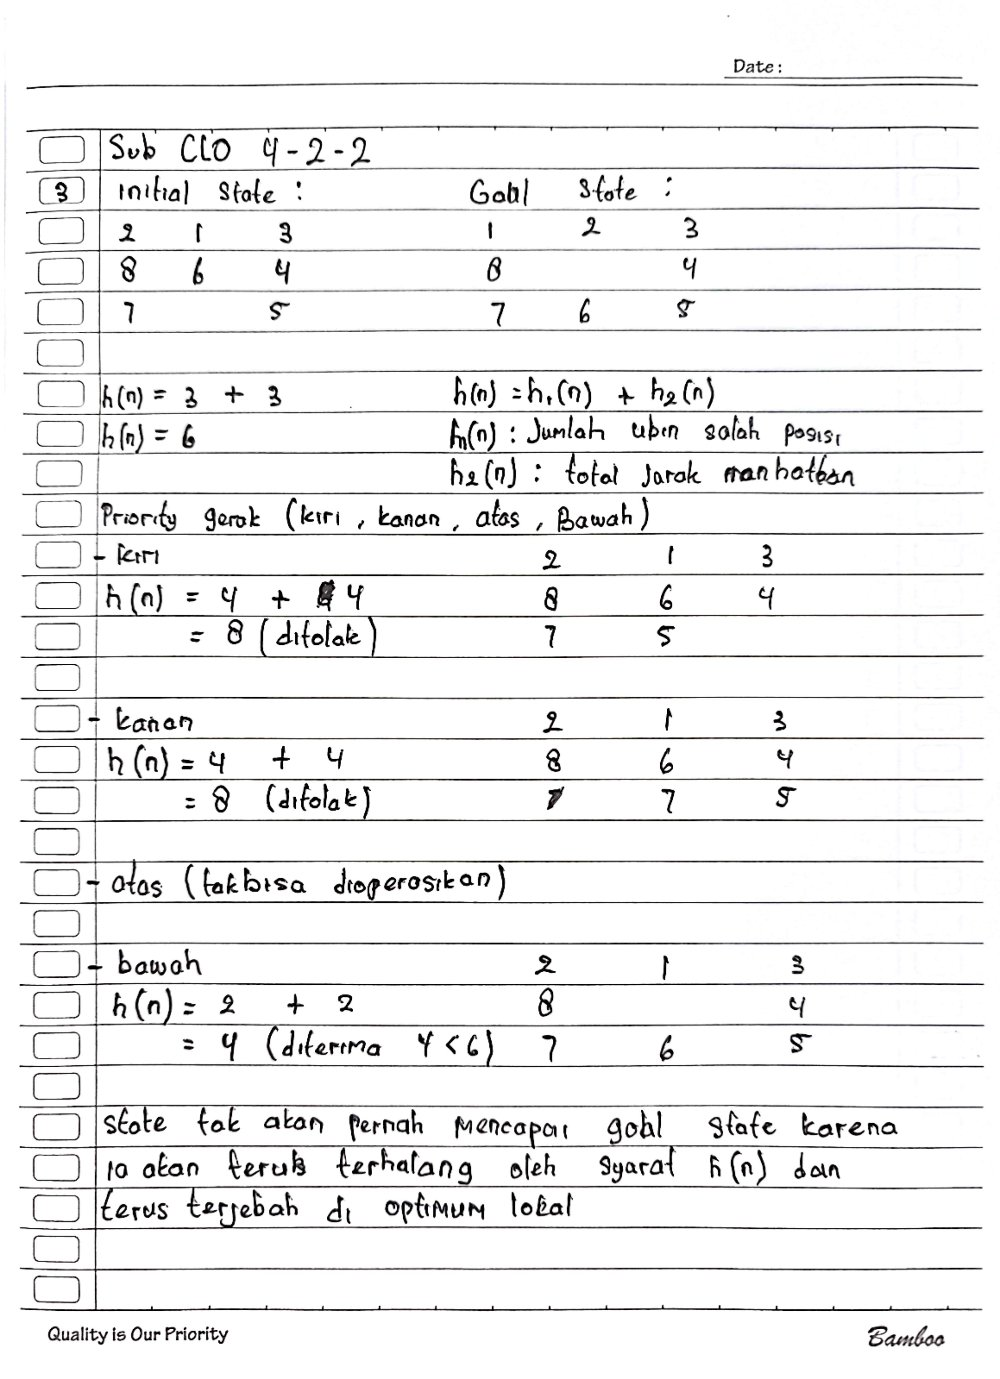 Date :
Sub CLO 4-2-2
3 Initial State : Goal State :
2 1 3 1 2 3
8 6 4 8 4
7 5 7 6 5
h(n) = 3 + 3 h(n) = h1(n) + h2(n)
h(n) = 6 h1(n) : Jumlah ubin salah posisi
h2(n) : total jarak manhattan
Priority gerak (kiri , kanan , atas , Bawah)
- kiri 2 1 3
h(n) = 4 + 4 8 6 4
= 8 (ditolak) 7 5
- kanan 2 1 3
h(n) = 4 + 4 8 6 4
= 8 (ditolak) 7 5
- atas (tak bisa dioperasikan)
- bawah 2 1 3
h(n) = 2 + 2 8 4
= 4 (diterima 4 < 6) 7 6 5
state tak akan pernah mencapai goal state karena
ia akan terus terhalang oleh syarat h(n) dan
terus terjebah di optimum lokal
Quality is Our Priority Bamboo